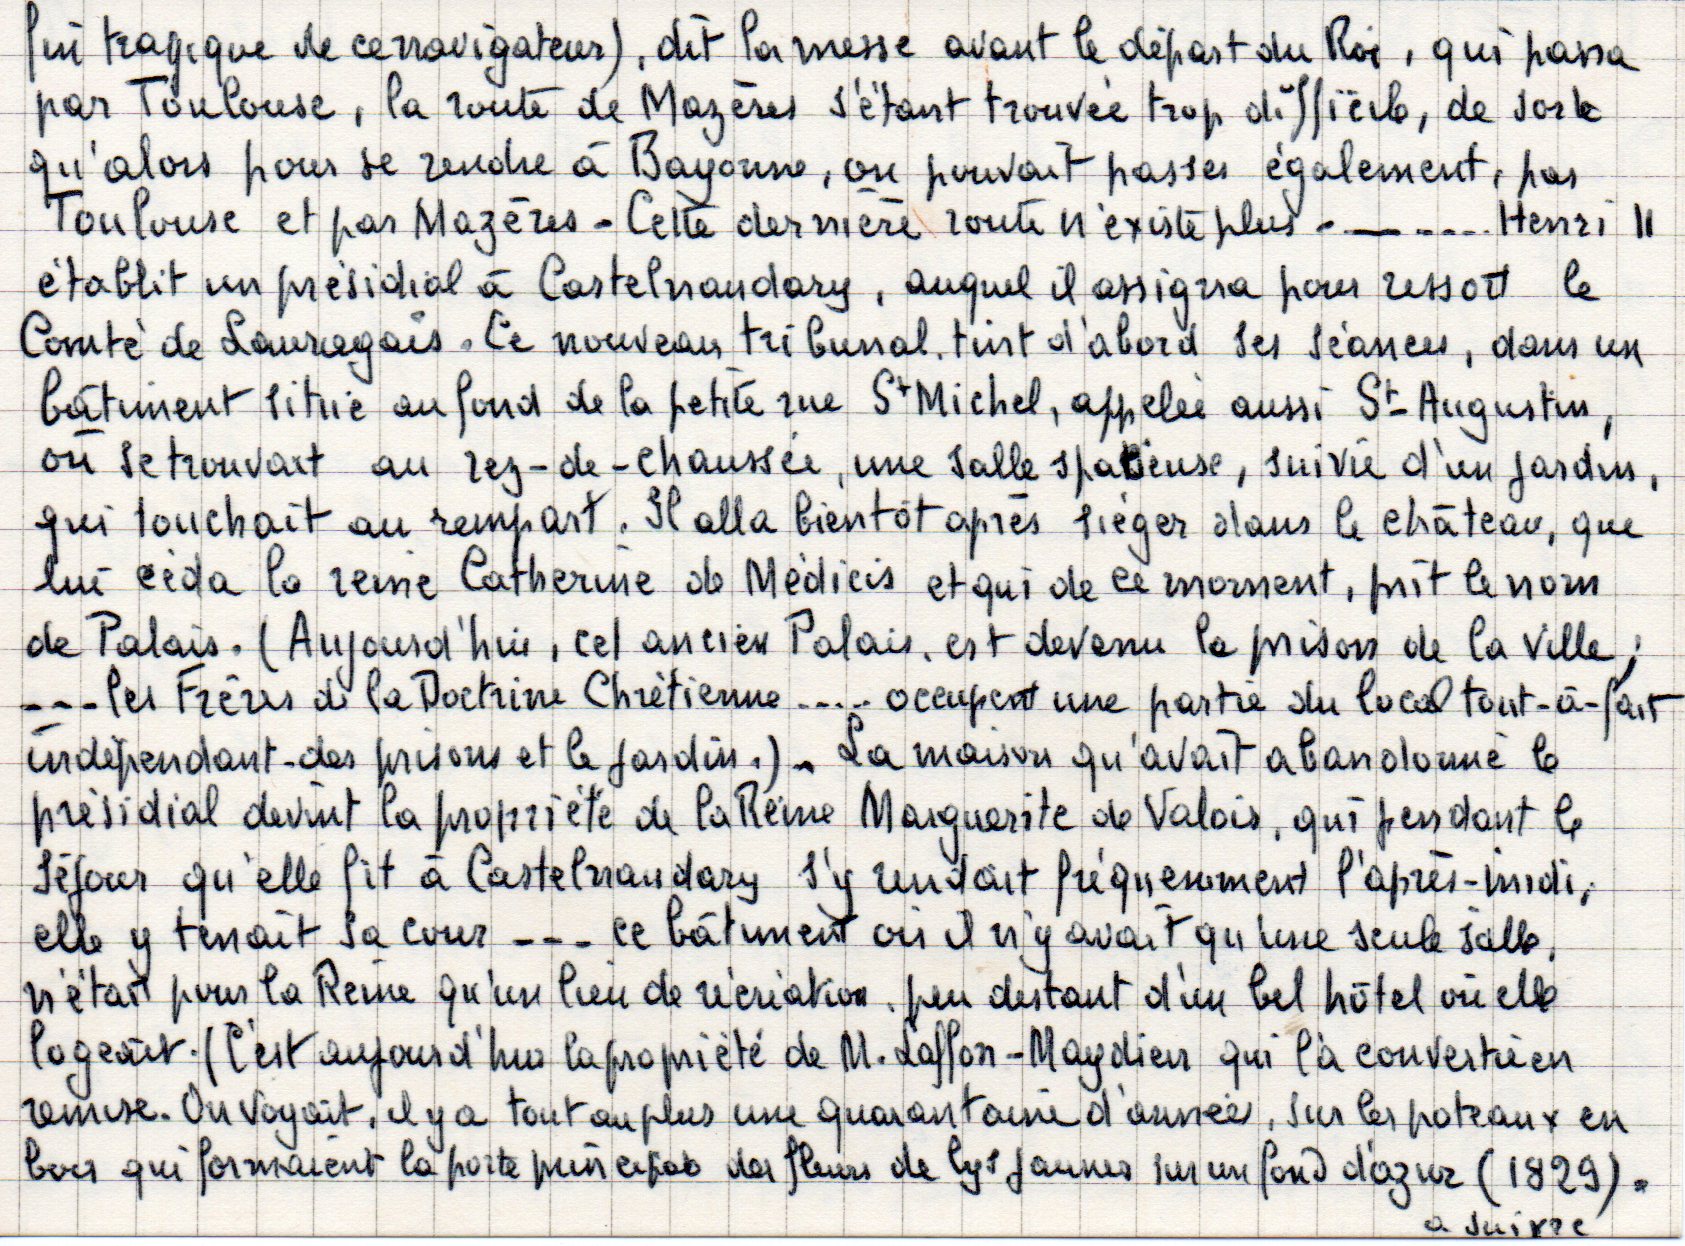 fin tragique de ce navigateur), dit la messe avant le départ du Roi, qui passa
par Toulouse, la route de Mazères s'étant trouvée trop difficile, de sorte
qu'alors pour se rendre à Bayonne, on pouvait passer également, par
Toulouse et par Mazères - Cette dernière route n'existe plus - ---- Henri II
établit un présidial à Castelnaudary, auquel il assigna pour ressort le
Comté de Lauragais. Ce nouveau tribunal, tint d'abord ses séances, dans un
bâtiment situé au fond de la petite rue St Michel, appelée aussi St-Augustin,
où se trouvait au rez-de-chaussée, une salle spacieuse, suivie d'un jardin,
qui touchait au rempart. Il alla bientôt après siéger dans le château, que
lui céda la reine Catherine de Médicis et qui de ce moment, prit le nom
de Palais. (Aujourd'hui, cet ancien Palais, est devenu la prison de la ville;
---les Frères de la Doctrine Chrétienne ..... occupent une partie du local tout-à-fait
indépendant-des prisons et le jardin.)- La maison qu'avait abandonné le
présidial devint la propriété de la Reine Marguerite de Valois, qui pendant le
séjour qu'elle fit à Castelnaudary s'y rendait fréquemment l'après-midi,
elle y tenait sa cour --- ce bâtiment où il n'y avait qu'une seule salle,
n'était pour la Reine qu'un lieu de récréation, peu distant d'un bel hôtel où elle
logeait. (C'est aujourd'hui la propriété de M. Laffon-Maydieu qui l'a convertie en
remise. On voyait, il y a tout au plus une quarantaine d'années, sur les poteaux en
bois qui formaient la porte principale des fleurs de lys jaunes sur un fond d'azur (1829).
a suivre